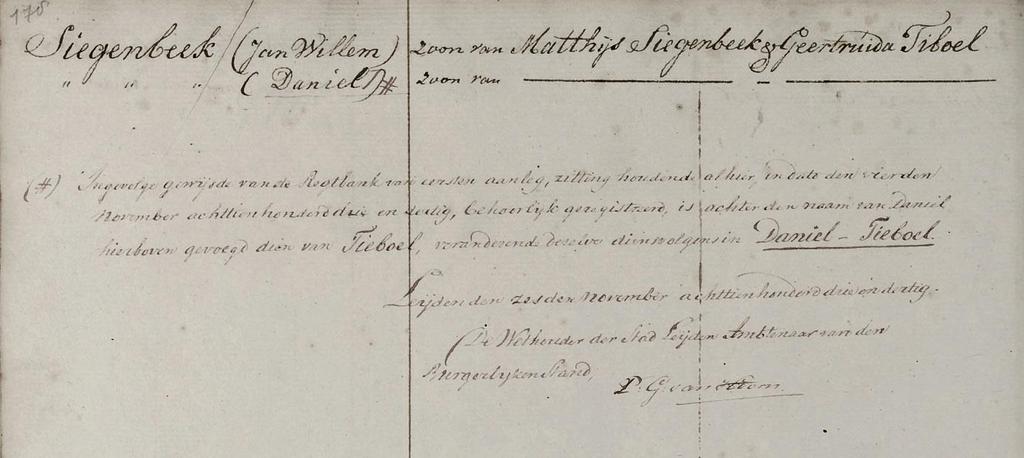 178
Siegenbeek (Jan Willem) zoon van Matthijs Siegenbeek & Geertruida Tiboel
" " " (Daniel)# zoon van
(#) Ingevolge gewijsde van de Regtbank van eersten aanleg, zitting houdende alhier, in dato den vierden
November achttienhonderd drie en dertig, behoorlijk geregistreerd, is achter den naam van Daniël
hierboven gevoegd dien van Tieboel, veranderende dezelve dienvolgens in Daniel - Tieboel.
Leijden den zesden November achttienhonderd drie en dertig.
De Wethouder der Stad Leijden Ambtenaar van den
Burgerlijken Stand,
P. G. van